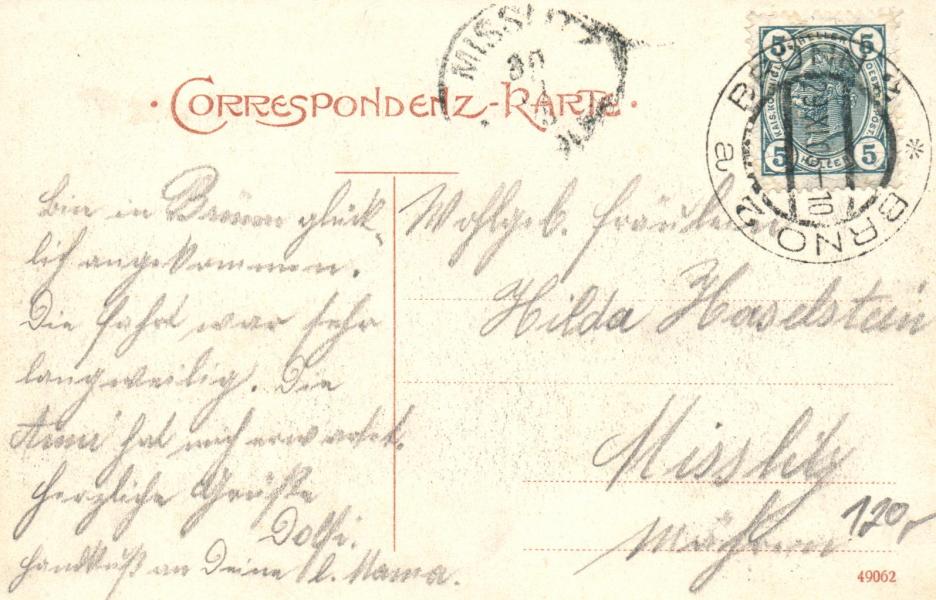 CORRESPONDENZ-KARTE.
MISSLITZ
30
5 HELLER 5
5 HELLER 5
BRÜNN 2
BRNO 2
a
10
Bin in Brünn glück-
lich angekommen.
Die Fahrt war sehr
langweilig. Die
Anni hat mich erwartet.
Herzliche Grüße
Dolfi.
Handkuß an Deine l. Mama.
Wohlgeb. Fräulein
Hilda Haselstein
Misslitz
Mähren
120,-
49062